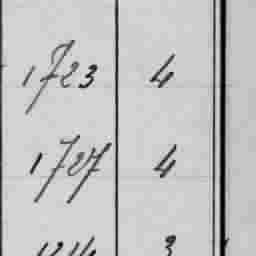 1723 4
1727 4
3